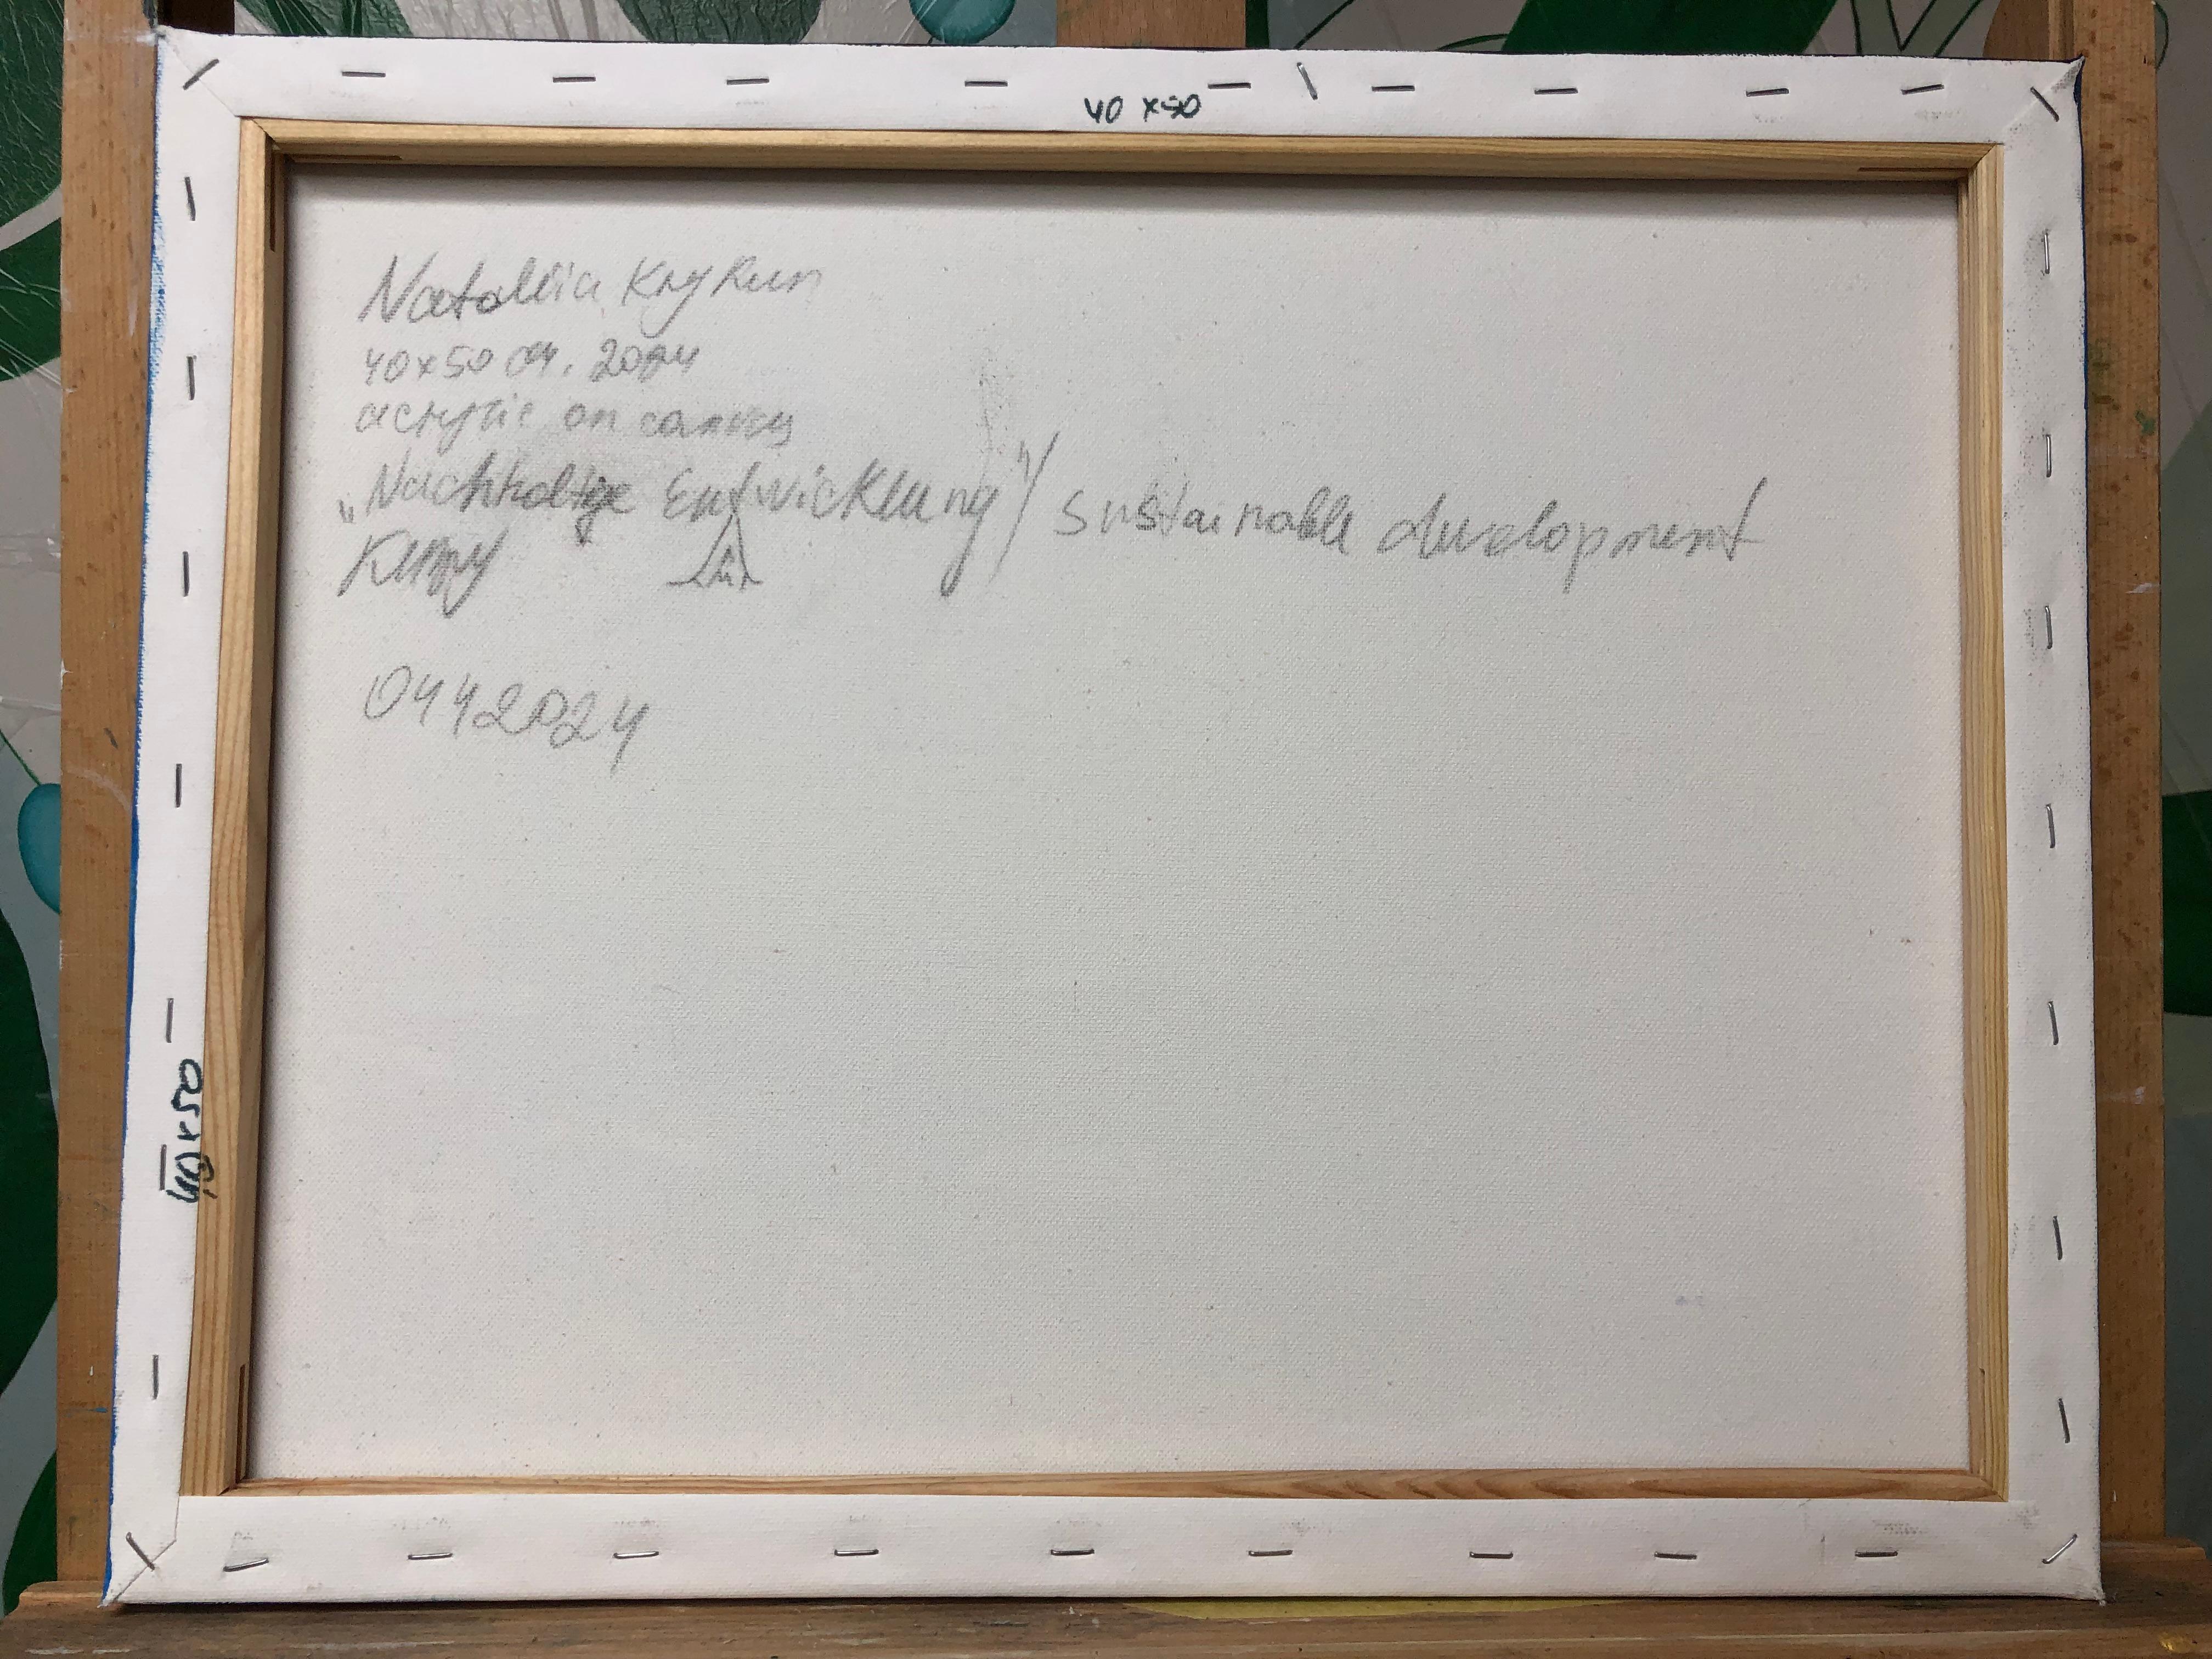 40 x 50
Nataliia Krykun
40x50 04. 2024
acrylic on canvas
„Nachhaltige Entwicklung"/ sustainable development
0442024
40x50